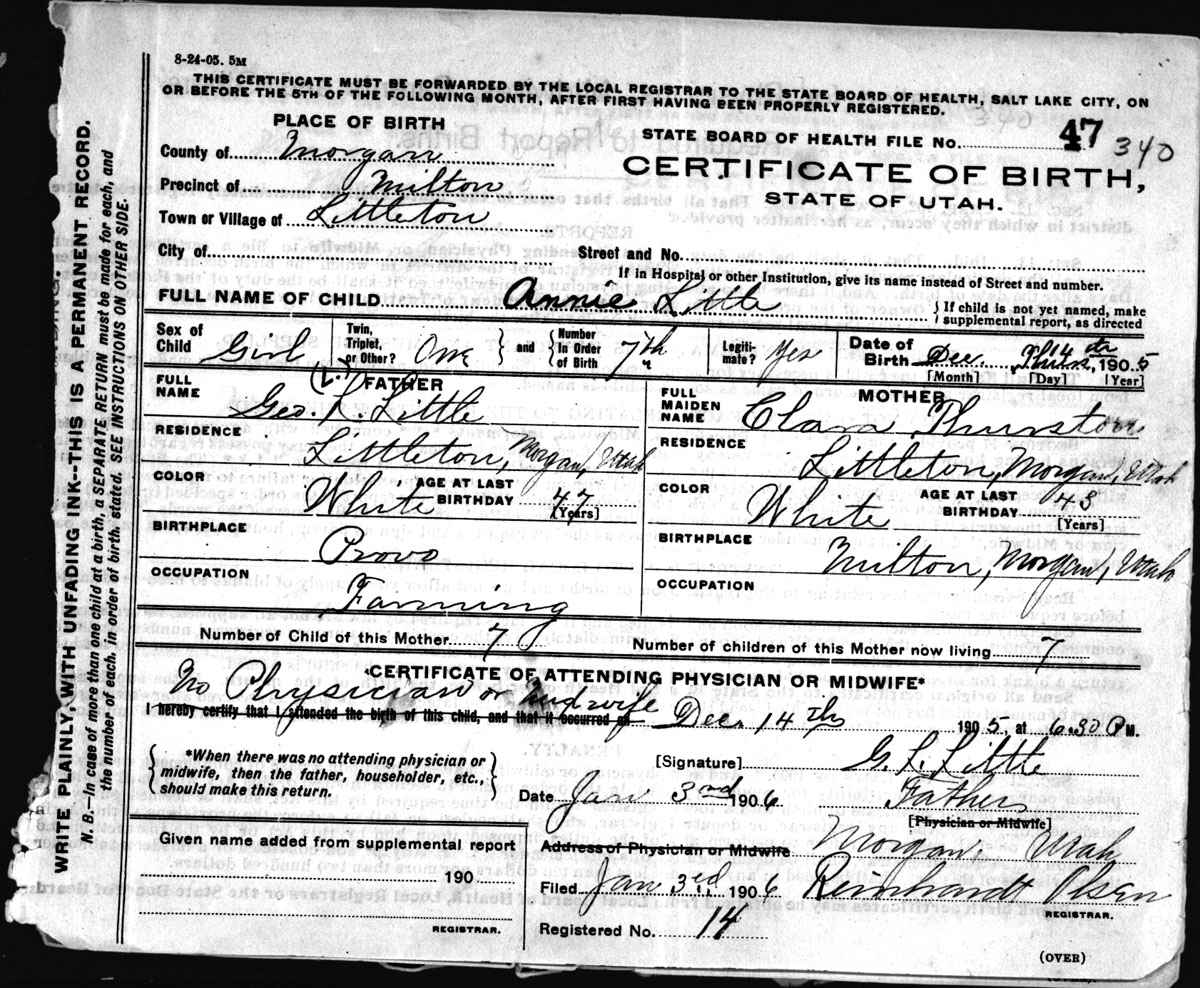 8-24-05. 5M
THIS CERTIFICATE MUST BE FORWARDED BY THE LOCAL REGISTRAR TO THE STATE BOARD OF HEALTH, SALT LAKE CITY, ON
OR BEFORE THE 5TH OF THE FOLLOWING MONTH, AFTER FIRST HAVING BEEN PROPERLY REGISTERED.
WRITE PLAINLY WITH UNFADING INK--THIS IS A PERMANENT RECORD.
N. B.—In case of more than one child at a birth, a SEPARATE RETURN must be made for each, and
the number of each, in order of birth, stated. SEE INSTRUCTIONS ON OTHER SIDE.
PLACE OF BIRTH
County of Morgan
Precinct of Milton
Town or Village of Littleton
City of
STATE BOARD OF HEALTH FILE NO. 47 340
CERTIFICATE OF BIRTH,
STATE OF UTAH.
Street and No.
If in Hospital or other Institution, give its name instead of Street and number.
FULL NAME OF CHILD Annie Little
If child is not yet named, make
supplemental report, as directed
Sex of Child Girl
Twin, Triplet, or Other? One
and
Number In Order of Birth 7th
Legiti-mate? Yes
Date of Birth Dec. 14th 1905
[Month] [Day] [Year]
FATHER
FULL NAME Geo. L. Little (L.)
RESIDENCE Littleton, Morgan, Utah
COLOR White
AGE AT LAST BIRTHDAY 47
[Years]
BIRTHPLACE Provo
OCCUPATION Farming
MOTHER
FULL MAIDEN NAME Clara Thurston
RESIDENCE Littleton, Morgan, Utah
COLOR White
AGE AT LAST BIRTHDAY 43
[Years]
BIRTHPLACE Milton, Morgan, Utah
OCCUPATION
Number of Child of this Mother 7
Number of children of this Mother now living 7
CERTIFICATE OF ATTENDING PHYSICIAN OR MIDWIFE*
No Physician or Midwife
I hereby certify that I attended the birth of this child, and that it occurred on Dec. 14th 1905, at 6.30 P M.
*When there was no attending physician or
midwife, then the father, householder, etc.,
should make this return.
[Signature] G. L. Little
Date Jan 3rd 1906 Father
[Physician or Midwife]
Address of Physician or Midwife Morgan, Utah
Given name added from supplemental report
190
REGISTRAR.
Filed Jan 3rd 1906 Reinhardt Olsen
REGISTRAR.
Registered No. 14
(OVER)